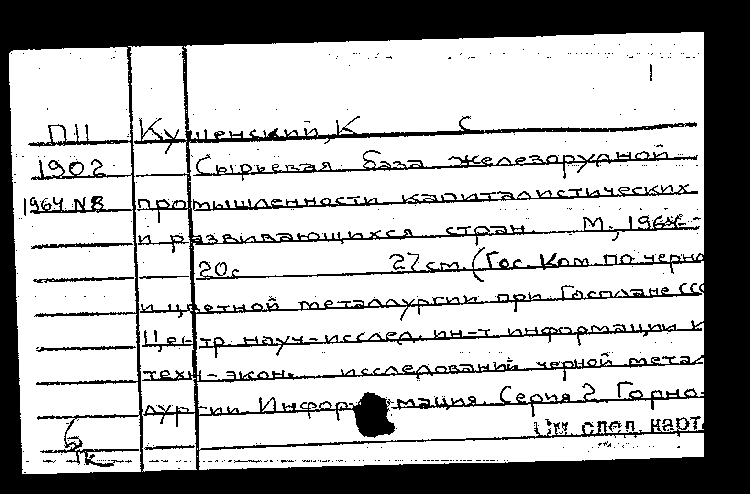 П11 Кушенский, К С
1902 Сырьевая база железорудной
1964 N8 промышленности капиталистических
и развивающихся стран. М., 1964.-
20с 27 cm. (Гос. Ком. по черно
и цветной металлургии при Госплане ССС
Центр. науч-исслед. ин-т информации и
техн-экон. исследований черной метал
лургии. Информация. Серия 2. Горно-
См. след. карт